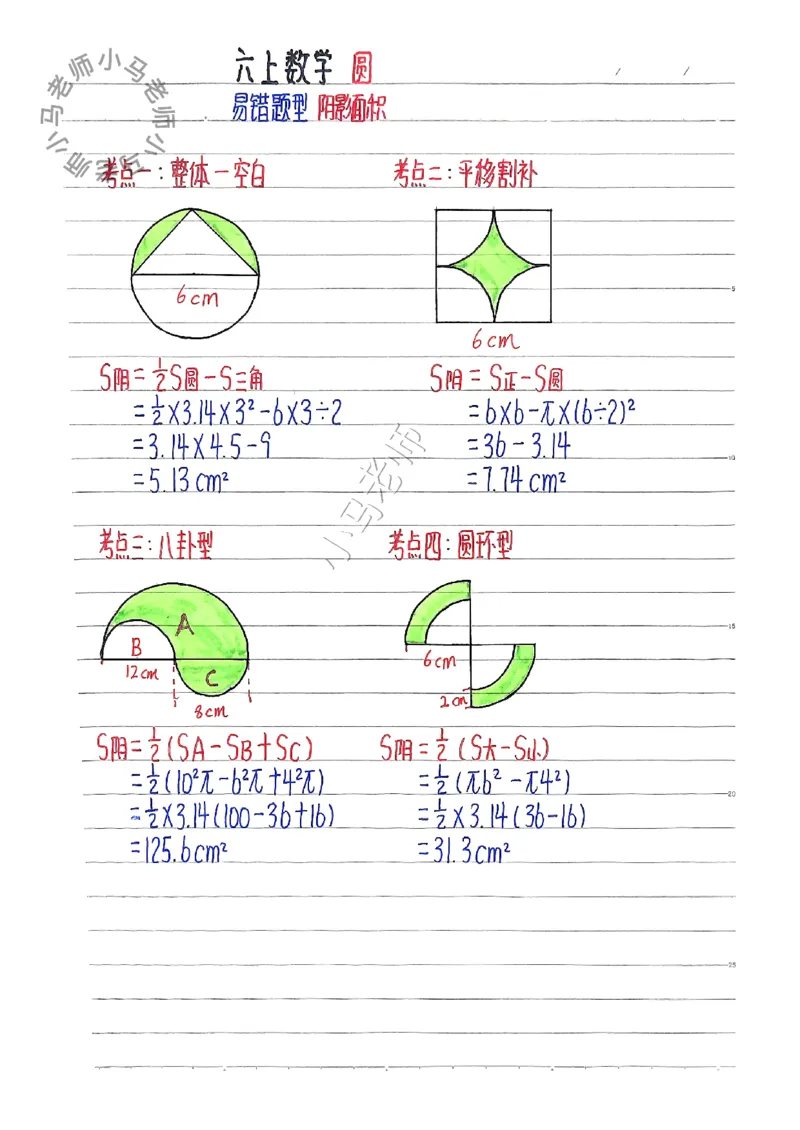 小马老师小马老师小马老师
六上数学 圆
易错题型 阴影面积
考点一：整体－空白
6cm
S阴=½S圆-S三角
=½×3.14×3²-6×3÷2
=3.14×4.5-9
=5.13cm²
考点二：平移割补
6cm
S阴=S正-S圆
=6×6-π×(6÷2)²
=36-3.14
=7.74cm²
小马老师
考点三：八卦型
A
B
12cm
C
8cm
S阴=½(SA-SB+SC)
=½(10²π-6²π+4²π)
=½×3.14(100-36+16)
=125.6cm²
考点四：圆环型
6cm
2cm
S阴=½(S大-S小)
=½(π6²-π4²)
=½×3.14(36-16)
=31.3cm²
5
10
15
20
25